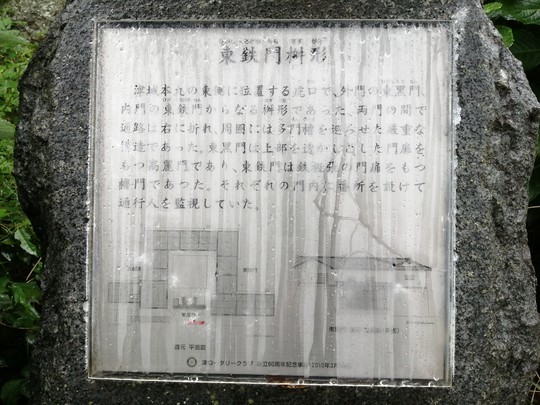 東鉄門枡形
津城本丸の東側に位置する虎口で、外門の東黒門、
内門の東鉄門からなる枡形であった。両門の間で
通路は右に折れ、周囲には多門櫓を巡らせた厳重な
構造であった。東黒門は上部を透かしとした門扉を
もつ高麗門であり、東鉄門は鉄板張の門扉をもつ
櫓門であった。それぞれの門内に番所を設けて
通行人を監視していた。
復元 平面図
津ロータリークラブ 創立60周年記念事業 2010年3月